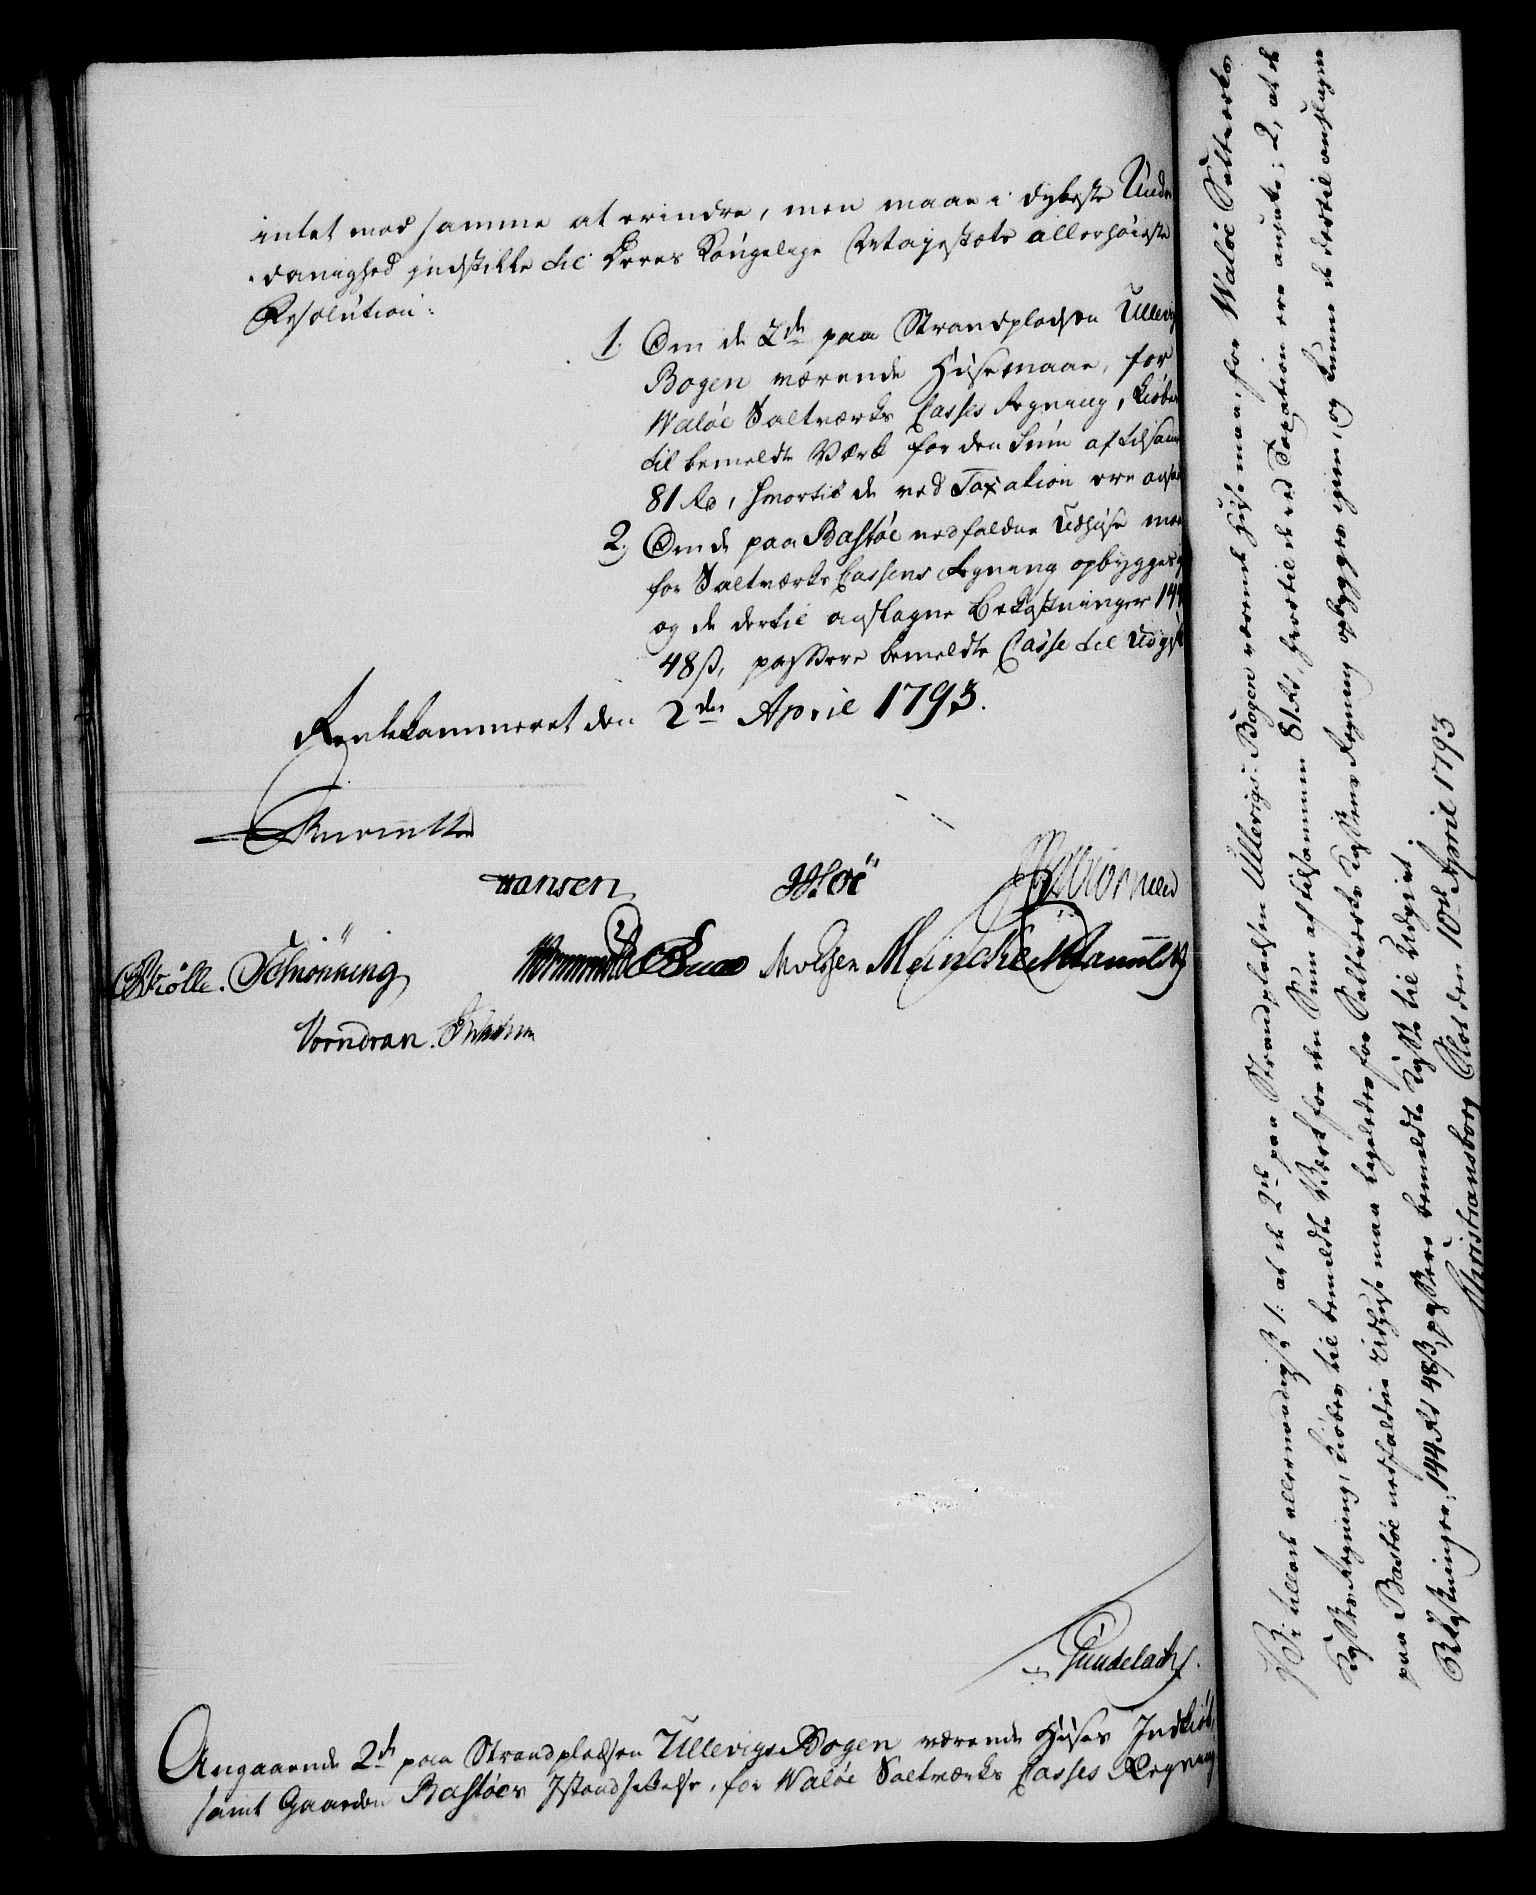 intet mod samme at erindre, men maae i dybeste Under
danighed indstille til Deres Kongelige Majestæts allerhøieste
Resolution:
1. Om de 2de paa Strandpladsen Ullevigs
Bogen værende Huse maae, for
Waløe Saltværks Casses Regning, kiøbes
til bemeldte Værk for den Sum af tilsam
81 Rd, hvortil de ved Taxation ere ansat
2. Om de paa Bastøe nedfaldne Udhuse maa
for Saltværks Cassens Regning opbygges
og de dertil anslagne Bekostninger 144
48 ß, passere bemeldte Casse til Udgift
Rentekammeret den 2den April 1793.
Hansen
Schiønning
Meincke
Vorndran.
Gundelach.
Angaaende 2de paa Strandpladsen Ullevigs Bogen værende Huses Indkiøb,
samt Gaarden Bastøes Istandsættelse, for Waløe Saltværks Casses Regning
Vi ville allernaadigst 1. at de 2de paa Strandpladsen Ullevigs Bogen værende Huse maa, for Waløe Saltværks
Casses Regning, kiøbes til bemeldte Værk for den Sum af tilsammen 81 Rd, hvortil de ved Taxation ere ansatte; 2, at de
paa Bastøe nedfaldne Udhuse maa ligeledes for Saltværks Kassens Regning opbygges igien, og kunne de dertil anslagne
Bekostninger, 144 Rd 48 ß, passere bemeldte Casse til Udgivt.
Christiansborg Slot den 10de April 1793